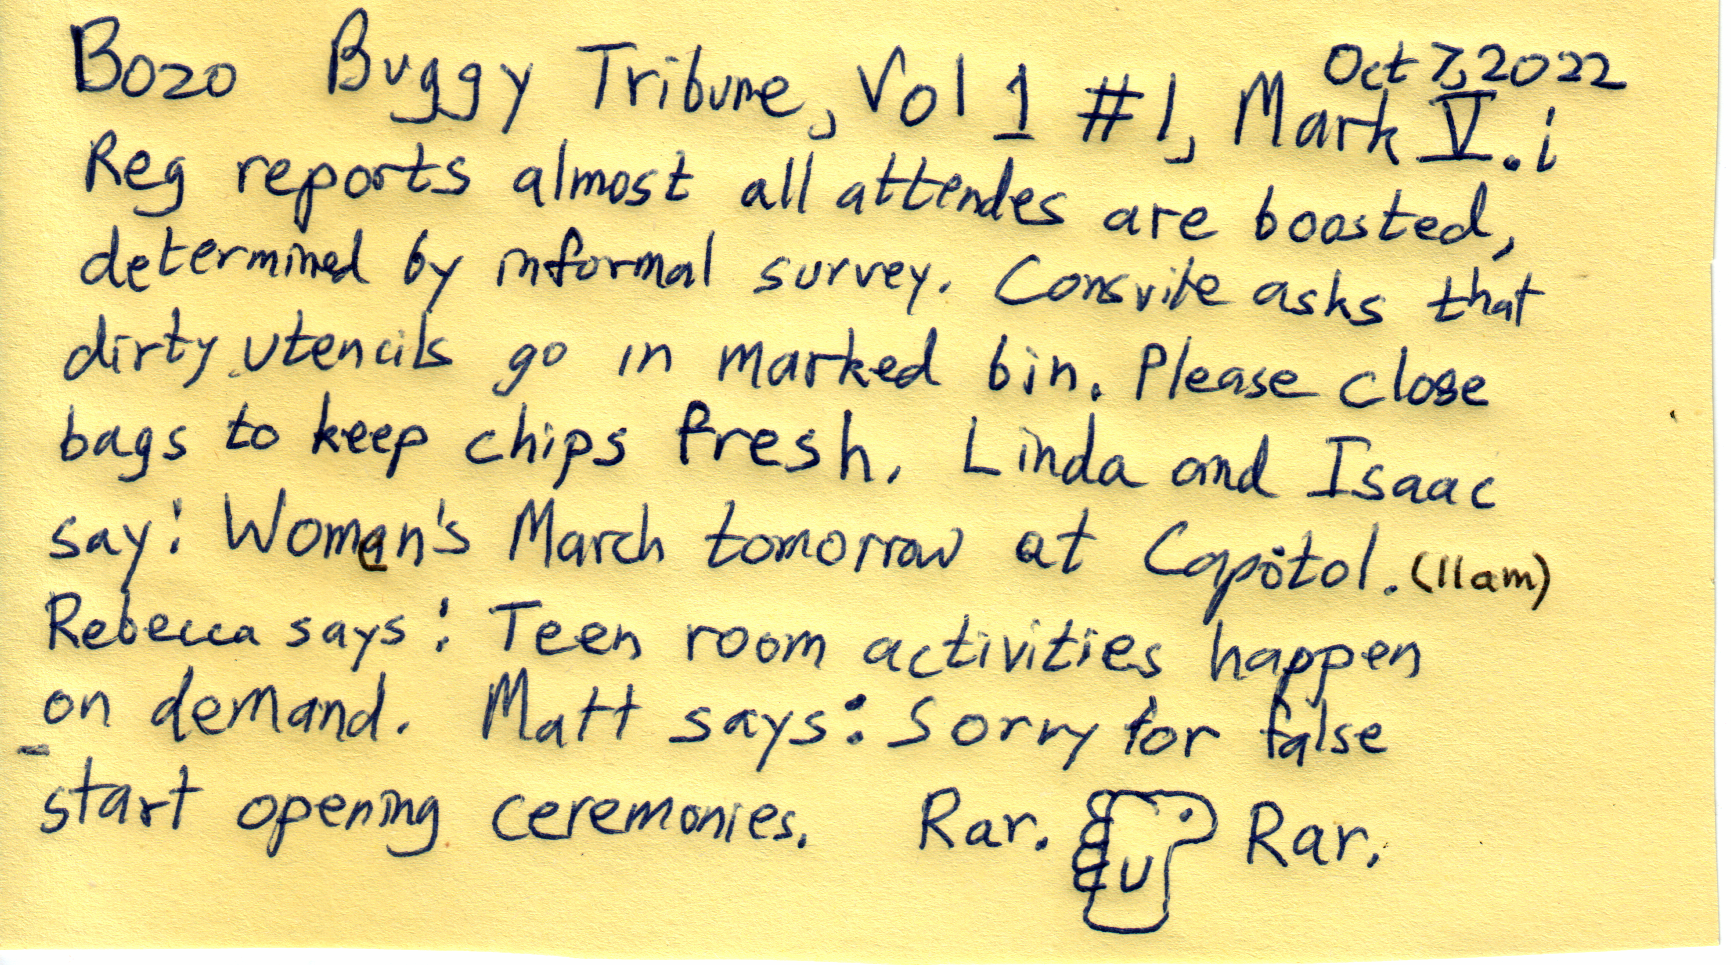 Bozo Buggy Tribune, Vol 1 #1, Mark V.i
Oct 7, 2022
Reg reports almost all attendes are boosted,
determined by informal survey. Consvite asks that
dirty utencils go in marked bin. Please close
bags to keep chips fresh. Linda and Isaac
say: Woman's March tomorrow at Capitol. (11am)
Rebecca says: Teen room activities happen
on demand. Matt says: Sorry for false
start opening ceremonies. Rar. Rar.